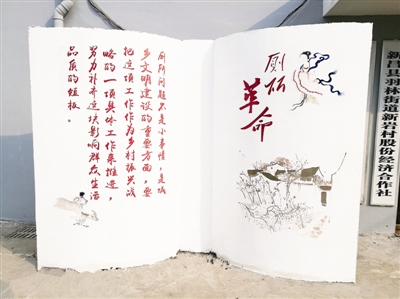 厕所
革命
厕所问题不是小事情，是城
乡文明建设的重要方面，要
把这项工作作为乡村振兴战
略的一项具体工作来推进，
努力补齐这块影响群众生活
品质的短板。
新昌县羽林街道新岩村股份经济合作社